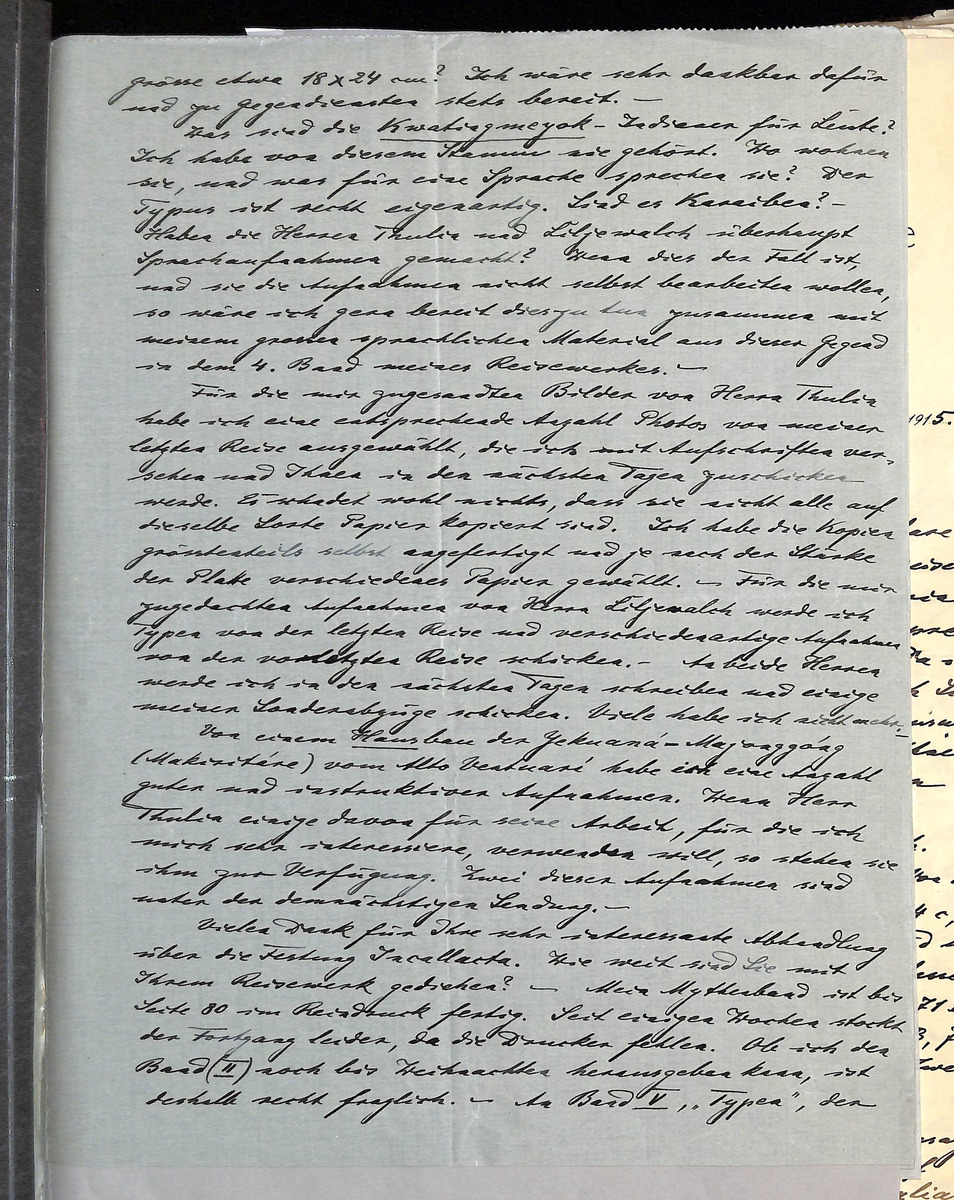 grösse etwa 18 x 24 cm? Ich wäre sehr dankbar dafür
und zu Gegendiensten stets bereit. —
Was sind die Kwatiagmeyok - Indianer für Leute?
Ich habe von diesem Stamm nie gehört. Wo wohnen
sie, und was für eine Sprache sprechen sie? Der
Typus ist recht eigenartig. Sind es Karaiben? —
Haben die Herren Thulin und Liljewalch überhaupt
Sprachaufnahmen gemacht? Wenn dies der Fall ist,
und sie die Aufnahmen nicht selbst bearbeiten wollen,
so wäre ich gern bereit dies zu tun zusammen mit
meinem grossen sprachlichen Material aus dieser Gegend
in dem 4. Band meines Reisewerkes. —
Für die mir zugesandten Bilder von Herrn Thulin
habe ich eine entsprechende Anzahl Photos von meiner
letzten Reise ausgewählt, die ich mit Aufschriften ver-
sehen und Ihnen in den nächsten Tagen zuschicken
werde. Es schadet wohl nichts, dass sie nicht alle auf
dieselbe Sorte Papier kopiert sind. Ich habe die Kopien
grösstenteils selbst angefertigt und je nach der Stärke
der Platte verschiedenes Papier gewählt. — Für die mir
zugedachten Aufnahmen von Herrn Liljewalch werde ich
Typen von der letzten Reise und verschiedenartige Aufnahmen
von der vorletzten Reise schicken. — An beide Herren
werde ich in den nächsten Tagen schreiben und einige
meiner Sonderabzüge schicken. Viele habe ich nicht mehr. —
Von einem Hausbau der Yekuaná - Majonggóng
(Makiritáre) vom Alto Ventuari habe ich eine Anzahl
guter und instruktiver Aufnahmen. Wenn Herr
Thulin einige davon für seine Arbeit, für die ich
mich sehr interessiere, verwenden will, so stehen sie
ihm zur Verfügung. Zwei dieser Aufnahmen sind
unter der demnächstigen Sendung. —
Vielen Dank für Ihre sehr interessante Abhandlung
über die Festung Incallacta. Wie weit sind Sie mit
Ihrem Reisewerk gediehen? — Mein Mythenband ist bis
Seite 80 im Reindruck fertig. Seit einigen Wochen stockt
der Fortgang leider, da die Drucker fehlen. Ob ich den
Band (II) noch bis Weihnachten herausgeben kann, ist
deshalb recht fraglich. — An Band V, „Typen“, der
1915.